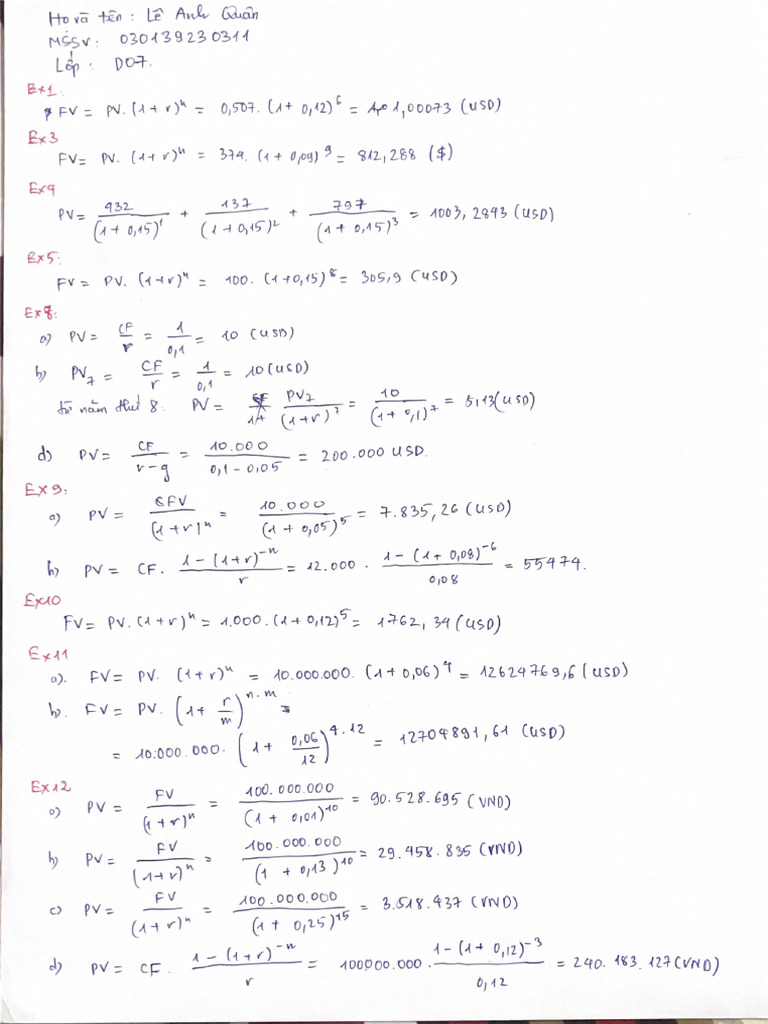 Họ và tên : Lê Anh Quân
MSSV : 030139230311
Lớp : D07.
Ex1:
FV = PV. (1+r)^n = 0,507. (1+ 0,12)^6 = 1,00073 (USD)
Ex3
FV = PV. (1+r)^n = 374. (1+0,09)^9 = 812,288 ($)
Ex4
PV = 432/(1+0,15)^1 + 137/(1+0,15)^2 + 797/(1+0,15)^3 = 1003,2843 (USD)
Ex5:
FV = PV. (1+r)^n = 100. (1+0,15)^8 = 305,9 (USD)
Ex8:
a) PV = CF/r = 1/0,1 = 10 (USD)
b) PV_7 = CF/r = 1/0,1 = 10 (USD)
từ năm thứ 8. PV = PV_7/(1+r)^7 = 10/(1+0,1)^7 = 5,13 (USD)
d) PV = CF/(r-g) = 10.000/(0,1-0,05) = 200.000 USD.
EX9:
a) PV = FV/(1+r)^n = 10.000/(1+0,05)^5 = 7.835,26 (USD)
b) PV = CF. (1-(1+r)^-n)/r = 12.000 . (1-(1+0,08)^-6)/0,08 = 55474.
Ex10
FV = PV. (1+r)^n = 1.000. (1+0,12)^5 = 1762,34 (USD)
Ex11
a). FV = PV. (1+r)^n = 10.000.000. (1+0,06)^4 = 12624769,6 (USD)
b. FV = PV. (1+ r/m)^n.m =
= 10.000.000. (1+ 0,06/12)^4.12 = 12704891,61 (USD)
Ex12
a) PV = FV/(1+r)^n = 100.000.000/(1+0,01)^10 = 90.528.695 (VND)
b) PV = FV/(1+r)^n = 100.000.000/(1+0,13)^10 = 29.458.835 (VND)
c) PV = FV/(1+r)^n = 100.000.000/(1+0,25)^15 = 3.518.437 (VND)
d) PV = CF. (1-(1+r)^-n)/r = 100.000.000 . (1-(1+0,12)^-3)/0,12 = 240.183.127 (VND)